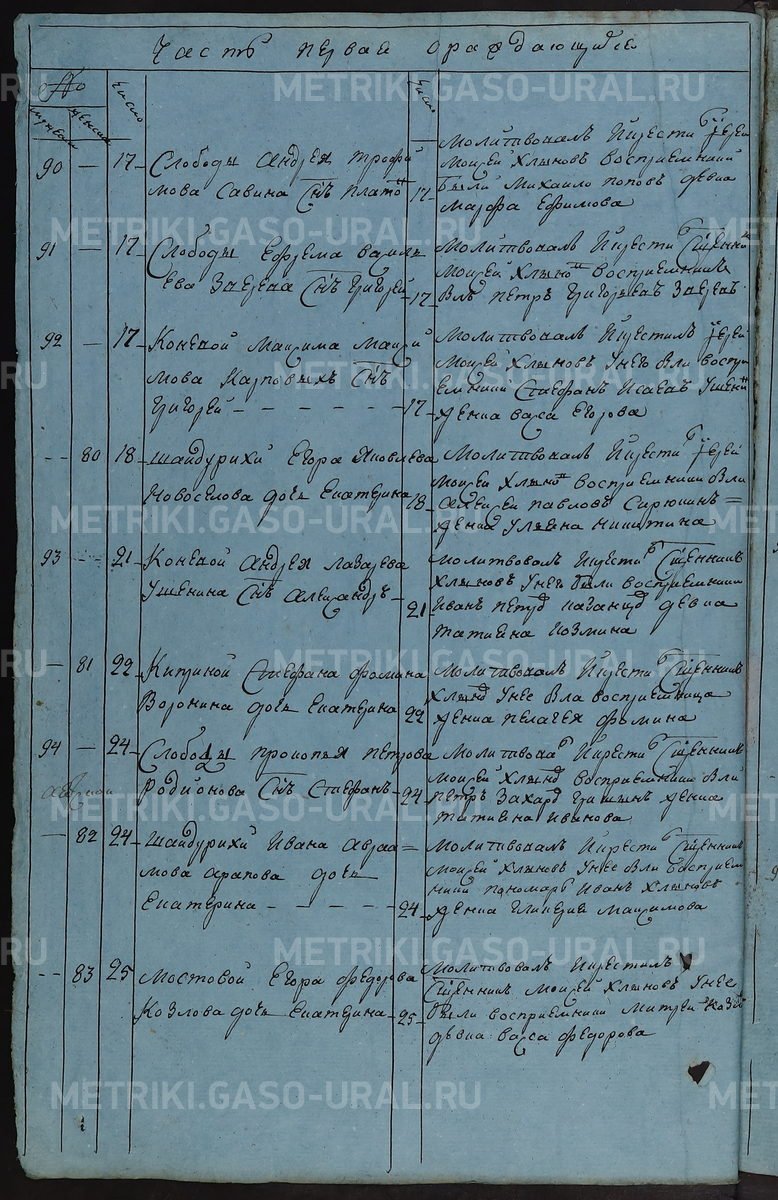 Часть первая о раждающихся
№
число
число
мужеска
женска
90 — 17 Слободы Андрея Трофи
мова Савина снъ Платонъ
17 Молитвовалъ и крести іерей
Моисей Хлыновъ восприемники
были Михаило Поповъ девка
Марфа Ефимова
91 — 17 Слободы Ефрема Василь
ева Зверева снъ Григорей
17 Молитвовалъ и крести сщенникъ
Моисей Хлыновъ восприемникъ
былъ Петръ Григорьевъ Зверевъ
92 — 17 Коневой Максима Макси
мова Карповыхъ снъ
Григорей
17 Молитвовалъ и крестилъ іерей
Моисей Хлыновъ у нехъ были воспри
емники Стефанъ Исаевъ Ушенинъ
женка Васса Егорова
— 80 18 Шайдурихи Егора Яковлева
Новоселова дочь Екатерина
18 Молитвовалъ и крести іерей
Моисей Хлыновъ восприемники были
Алексей Павловъ Сирюкинъ
женка Ульяна Никитина
93 — 21 Коневой Андрея Лазарева
Ушенина снъ Александръ
21 Молитвовалъ и крести сщенникъ
Хлыновъ у нехъ были восприемники
Иванъ Петровъ девка
Татиана Козмина
— 81 22 Киприной Стефана Фомина
Воронина дочь Екатерина
22 Молитвовалъ и крести сщенникъ
Хлыновъ у нее была восприемница
женка Пелагея Фомина
94 — 24 Слободы Прокопья Петрова
Родионова снъ Стефанъ
24 Молитвовалъ и крести сщенникъ
Моисей Хлыновъ восприемники были
Петръ Захаровъ женка
Татиана Иванова
— 82 24 Шайдурихи Ивана Авраа=
мова Арапова дочь
Екатерина
24 Молитвовалъ и крести сщенникъ
Моисей Хлыновъ у нее были восприем
ники пономарь Иванъ Хлыновъ
женка Гликерия Максимова
— 83 25 Мостовой Егора Федорова
Козлова дочь Екатерина
25 Молитвовалъ и крестилъ
сщенникъ Моисей Хлыновъ у нее
были восприемники Митрей
девка Васса Федорова
METRIKI.GASO-URAL.RU